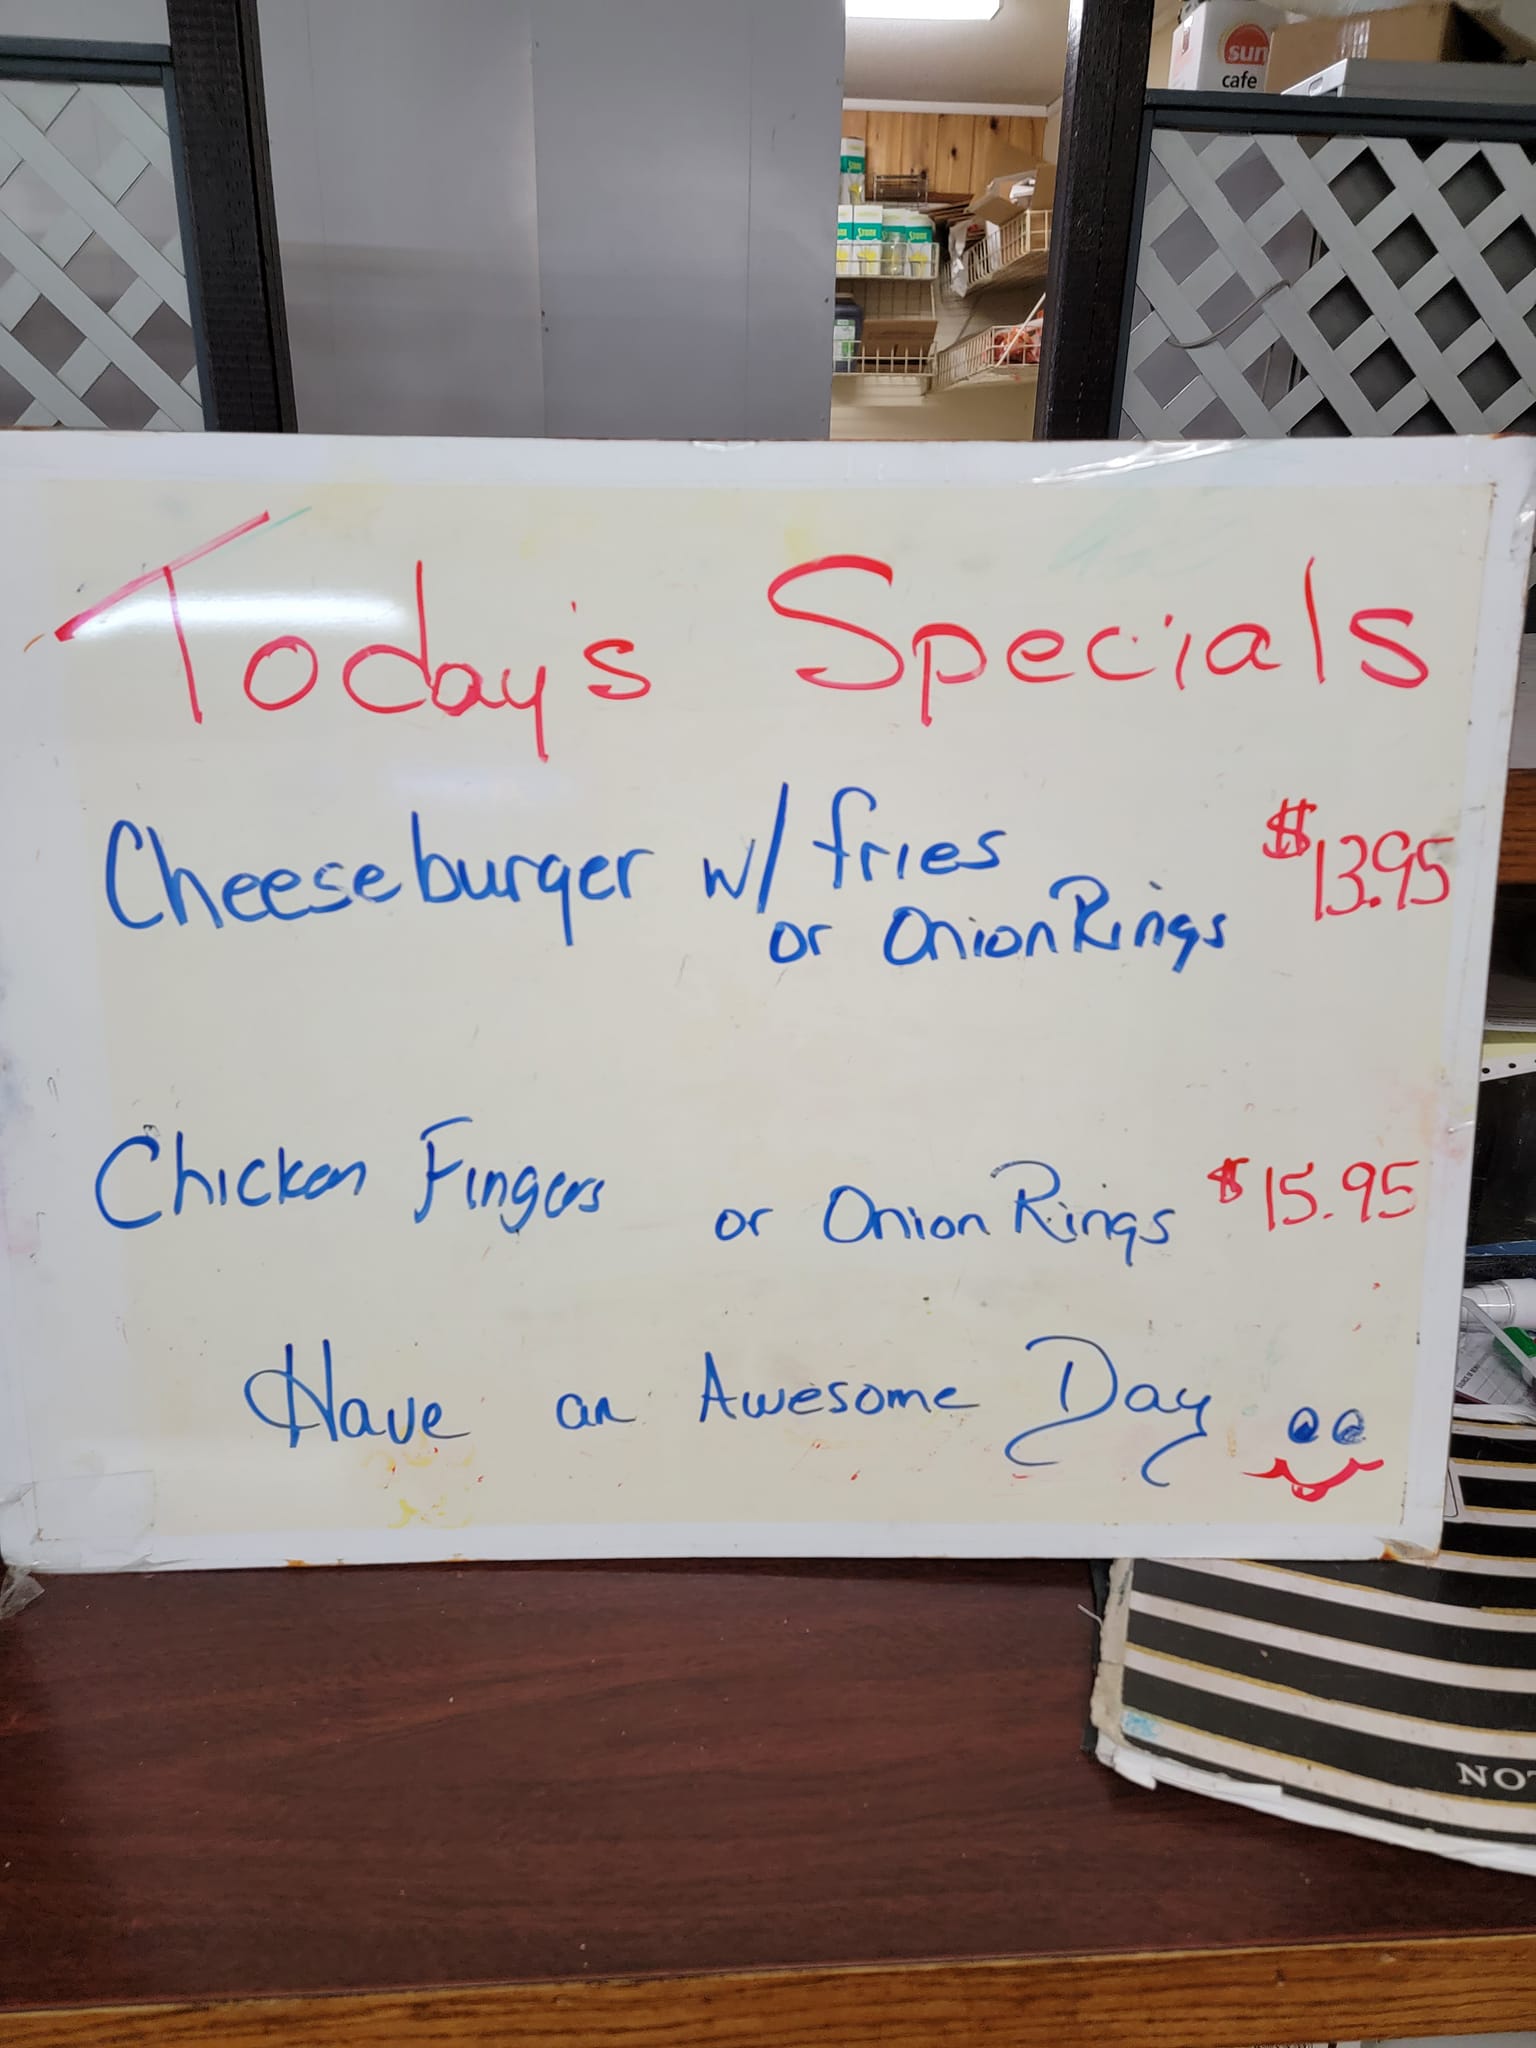 sun
cafe
Today's Specials
Cheeseburger w/ fries
or Onion Rings $13.95
Chicken Fingers or Onion Rings $15.95
Have an Awesome Day